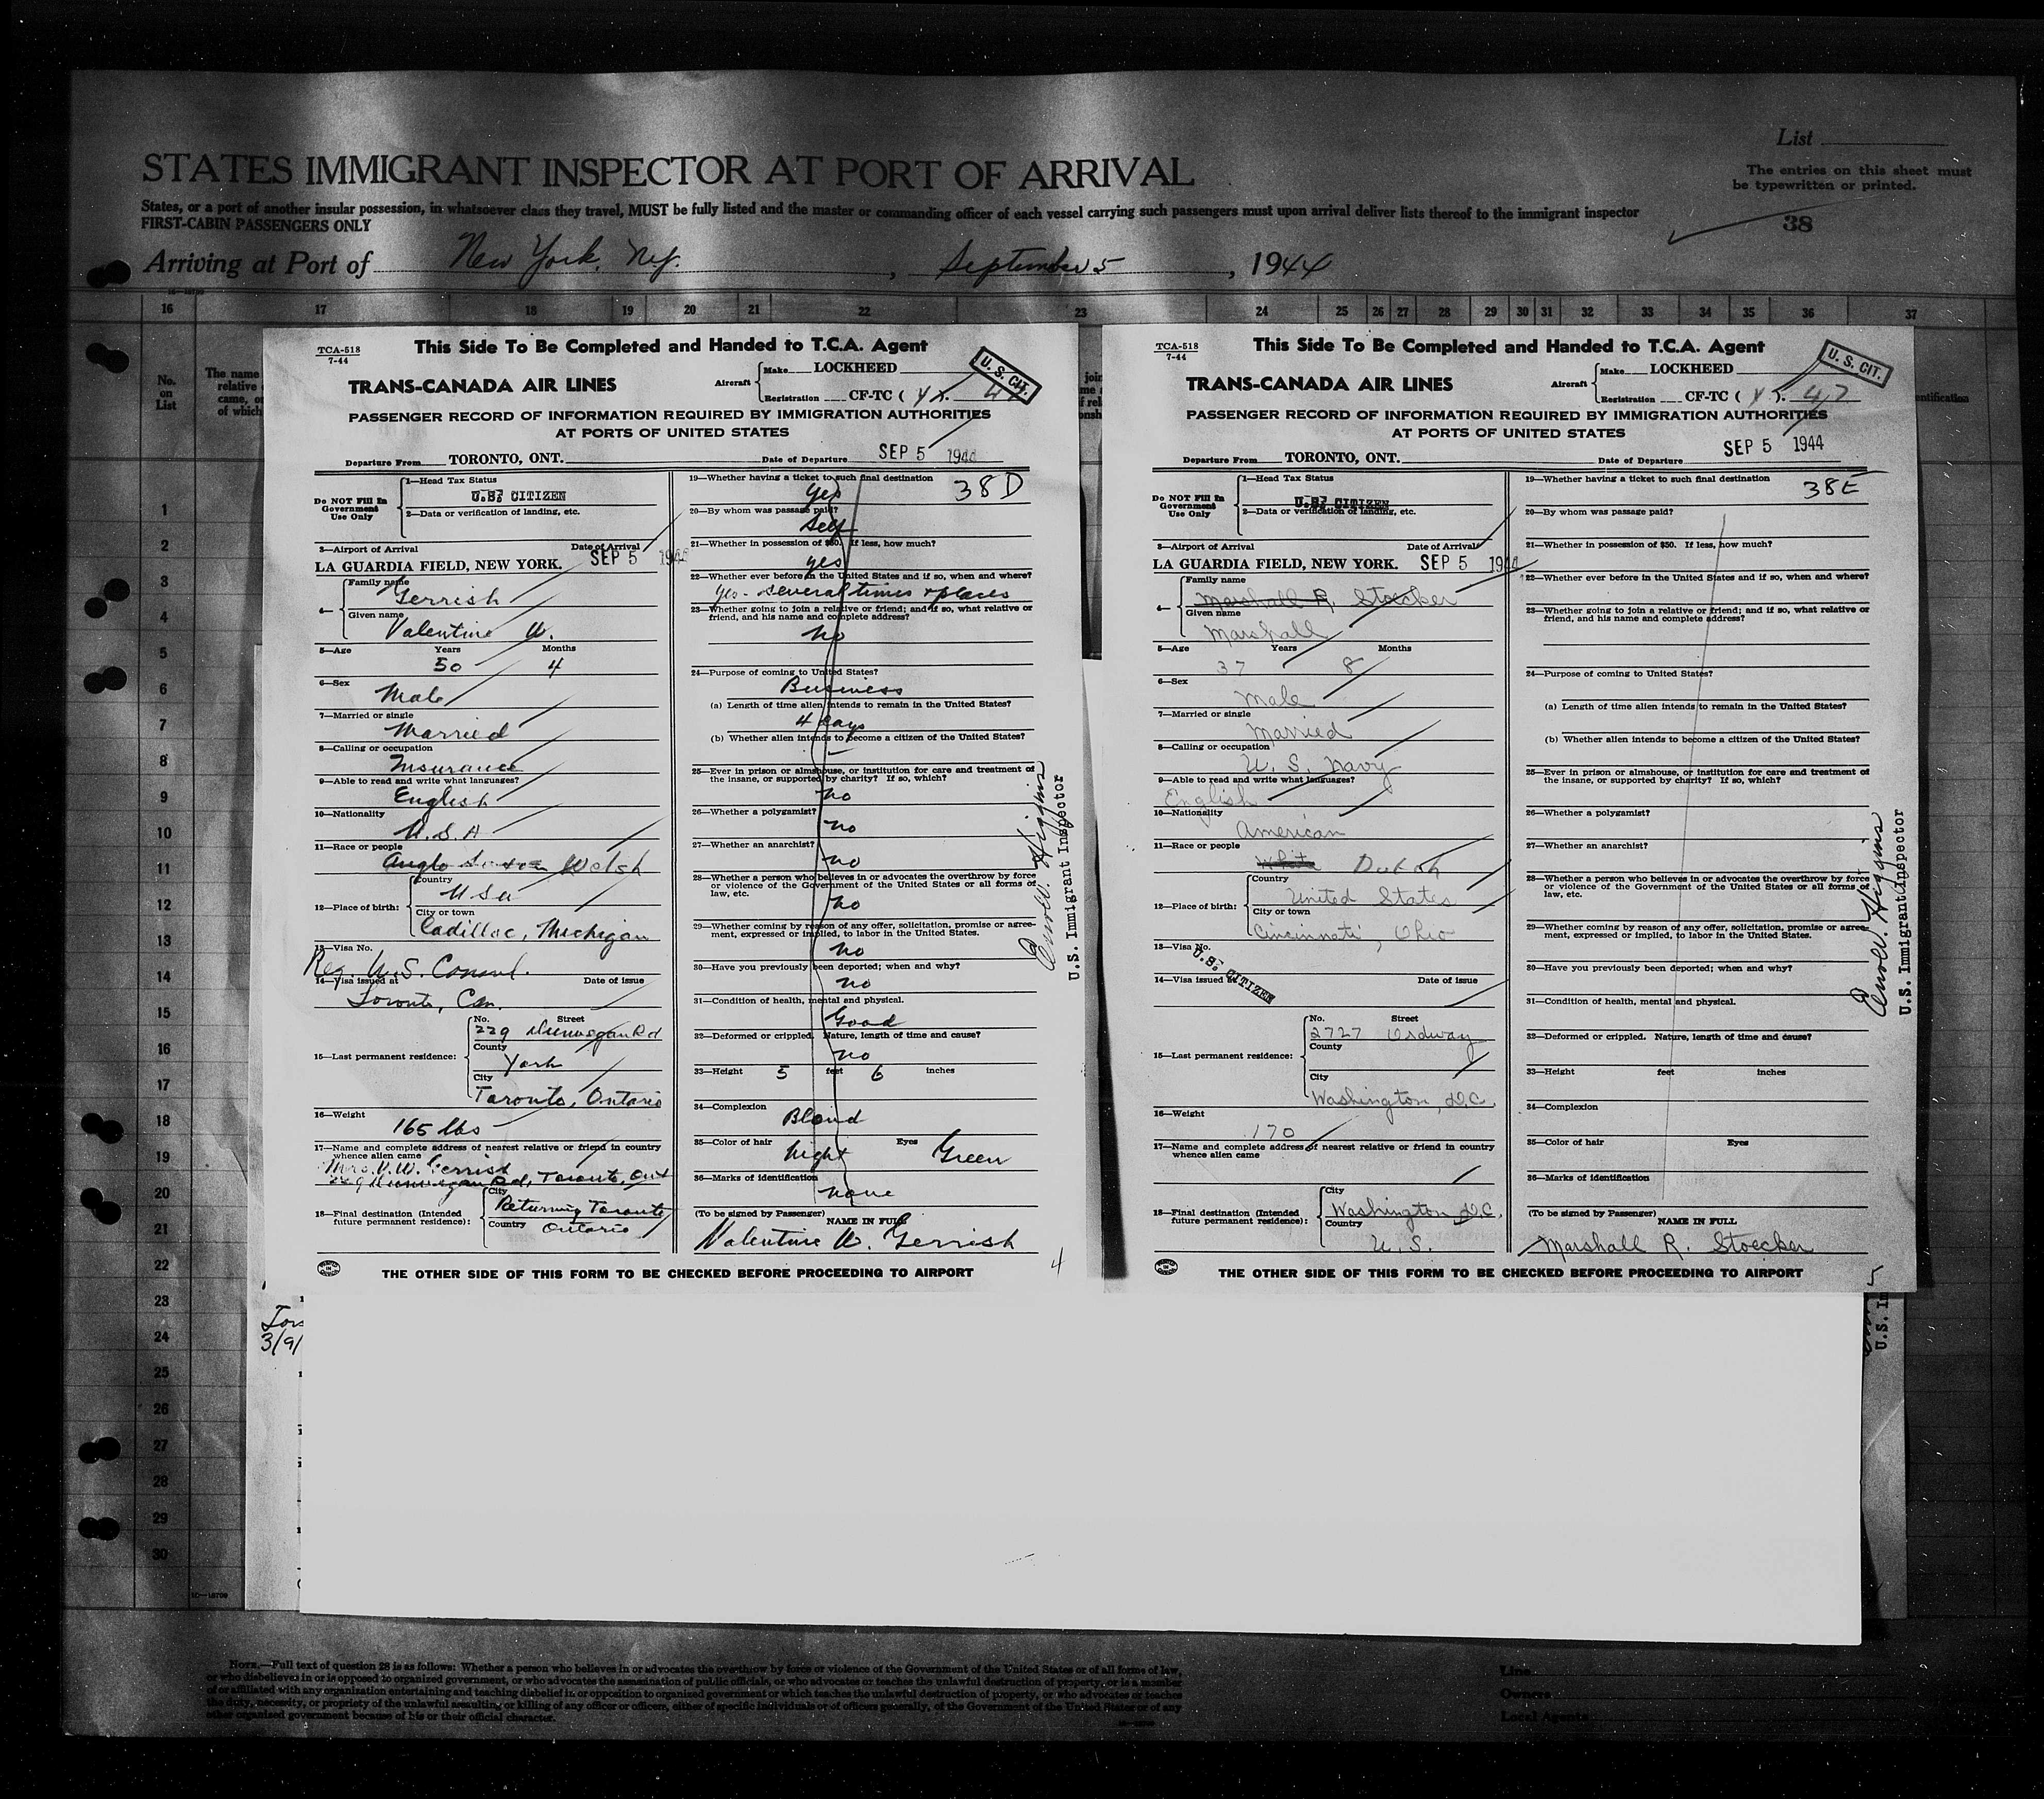 List
STATES IMMIGRANT INSPECTOR AT PORT OF ARRIVAL
The entries on this sheet must
be typewritten or printed.
States, or a port of another insular possession, in whatsoever class they travel, MUST be fully listed and the master or commanding officer of each vessel carrying such passengers must upon arrival deliver lists thereof to the immigrant inspector
FIRST-CABIN PASSENGERS ONLY
38
Arriving at Port of New York, N.Y., September 5, 1944
16 17 18 19 20 21 22 23 24 25 26 27 28 29 30 31 32 33 34 35 36 37
No.
on
List
The name
relative
came, or
of which
1
2
3
4
5
6
7
8
9
10
11
12
13
14
15
16
17
18
19
20
21
22
23
24
25
26
27
28
29
30
TCA-518
7-44
This Side To Be Completed and Handed to T.C.A. Agent
TRANS-CANADA AIR LINES
Aircraft
Make LOCKHEED
Registration CF-TC (
U. S. CIT.
PASSENGER RECORD OF INFORMATION REQUIRED BY IMMIGRATION AUTHORITIES
AT PORTS OF UNITED STATES
Departure From TORONTO, ONT. Date of Departure SEP 5 1944
Do NOT Fill In
Government
Use Only
1—Head Tax Status
U.S. CITIZEN
2—Data or verification of landing, etc.
3—Airport of Arrival Date of Arrival
LA GUARDIA FIELD, NEW YORK. SEP 5 1944
4—
Family name
Gerrish
Given name
Valentine W.
5—Age Years Months
50 4
6—Sex
Male
7—Married or single
Married
8—Calling or occupation
Insurance
9—Able to read and write what languages?
English
10—Nationality
U.S.A
11—Race or people
Anglo Saxon Welsh
12—Place of birth:
Country
USA
City or town
Cadillac, Michigan
13—Visa No.
Reg. U.S. Consul.
14—Visa issued at Date of issue
Toronto, Can.
15—Last permanent residence:
No. Street
229 Dunvegan Rd
County
York
City
Toronto, Ontario
16—Weight
165 lbs
17—Name and complete address of nearest relative or friend in country
whence alien came
Mrs. V. W. Gerrish
229 Dunvegan Rd, Toronto, Ont
18—Final destination (Intended
future permanent residence):
City
Returning Toronto
Country
Ontario
19—Whether having a ticket to such final destination
Yes 38D
20—By whom was passage paid?
Self
21—Whether in possession of $50. If less, how much?
yes
22—Whether ever before in the United States and if so, when and where?
yes - several times & places
23—Whether going to join a relative or friend; and if so, what relative or
friend, and his name and complete address?
no
24—Purpose of coming to United States?
Business
(a) Length of time alien intends to remain in the United States?
4 days
(b) Whether alien intends to become a citizen of the United States?
25—Ever in prison or almshouse, or institution for care and treatment of
the insane, or supported by charity? If so, which?
no
26—Whether a polygamist?
no
27—Whether an anarchist?
no
28—Whether a person who believes in or advocates the overthrow by force
or violence of the Government of the United States or all forms of
law, etc.
no
29—Whether coming by reason of any offer, solicitation, promise or agree-
ment, expressed or implied, to labor in the United States.
no
30—Have you previously been deported; when and why?
no
31—Condition of health, mental and physical.
Good
32—Deformed or crippled. Nature, length of time and cause?
no
33—Height 5 feet 6 inches
34—Complexion
Blond
35—Color of hair Eyes
Light Green
36—Marks of identification
none
(To be signed by Passenger)
NAME IN FULL
Valentine W. Gerrish
4
THE OTHER SIDE OF THIS FORM TO BE CHECKED BEFORE PROCEEDING TO AIRPORT
Higgins
U.S. Immigrant Inspector
TCA-518
7-44
This Side To Be Completed and Handed to T.C.A. Agent
TRANS-CANADA AIR LINES
Aircraft
Make LOCKHEED
Registration CF-TC ( 47
U. S. CIT.
PASSENGER RECORD OF INFORMATION REQUIRED BY IMMIGRATION AUTHORITIES
AT PORTS OF UNITED STATES
Departure From TORONTO, ONT. Date of Departure SEP 5 1944
Do NOT Fill In
Government
Use Only
1—Head Tax Status
U.S. CITIZEN
2—Data or verification of landing, etc.
3—Airport of Arrival Date of Arrival
LA GUARDIA FIELD, NEW YORK. SEP 5 1944
4—
Family name
Marshall R. Stoecker
Given name
Marshall
5—Age Years Months
37 8
6—Sex
Male
7—Married or single
Married
8—Calling or occupation
U. S. Navy
9—Able to read and write what languages?
English
10—Nationality
American
11—Race or people
White Dutch
12—Place of birth:
Country
United States
City or town
Cincinnati, Ohio
13—Visa No.
U.S. CITIZEN
14—Visa issued at Date of issue
15—Last permanent residence:
No. Street
2727 Ordway
County
City
Washington, D.C.
16—Weight
170
17—Name and complete address of nearest relative or friend in country
whence alien came
18—Final destination (Intended
future permanent residence):
City
Washington D.C.
Country
U. S.
19—Whether having a ticket to such final destination
38E
20—By whom was passage paid?
21—Whether in possession of $50. If less, how much?
22—Whether ever before in the United States and if so, when and where?
23—Whether going to join a relative or friend; and if so, what relative or
friend, and his name and complete address?
24—Purpose of coming to United States?
(a) Length of time alien intends to remain in the United States?
(b) Whether alien intends to become a citizen of the United States?
25—Ever in prison or almshouse, or institution for care and treatment of
the insane, or supported by charity? If so, which?
26—Whether a polygamist?
27—Whether an anarchist?
28—Whether a person who believes in or advocates the overthrow by force
or violence of the Government of the United States or all forms of
law, etc.
29—Whether coming by reason of any offer, solicitation, promise or agree-
ment, expressed or implied, to labor in the United States.
30—Have you previously been deported; when and why?
31—Condition of health, mental and physical.
32—Deformed or crippled. Nature, length of time and cause?
33—Height feet inches
34—Complexion
35—Color of hair Eyes
36—Marks of identification
(To be signed by Passenger)
NAME IN FULL
Marshall R. Stoecker
THE OTHER SIDE OF THIS FORM TO BE CHECKED BEFORE PROCEEDING TO AIRPORT
Higgins
U.S. Immigrant Inspector
5
3/9/
U.S. Im
NOTE.—Full text of question 28 is as follows: Whether a person who believes in or advocates the overthrow by force or violence of the Government of the United States or of all forms of law,
or who disbelieves in or is opposed to organized government, or who advocates the assassination of public officials, or who advocates or teaches the unlawful destruction of property, or is a member
of or affiliated with any organization entertaining and teaching disbelief in or opposition to organized government or which teaches the unlawful destruction of property, or who advocates or teaches
the duty, necessity, or propriety of the unlawful assaulting or killing of any officer or officers, either of specific individuals or of officers generally, of the Government of the United States or of any
other organized government because of his or their official character.
Line
Owners
Local Agents